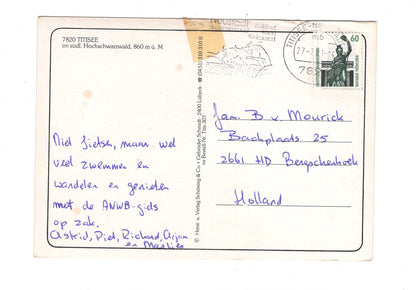 7820 TITISEE
im südl. Hochschwarzwald, 860 m ü. M
Niet fietsen, maar wel
veel zwemmen en
wandelen en genieten
met de ANWB-gids
op zak.
Astrid, Piet, Richard, Arjan
en Marlies
© Herst. u. Verlag Schöning & Co + Gebrüder Schmidt · 2400 Lübeck · ☎ (0451) 310 310
Bestell-Nr. Titi 307
Neustadt
TITISEE-NEUSTADT
mb
60
fam. B v. Mourick
Bachplaats 25
2661 HD Bergschenhoek
Holland